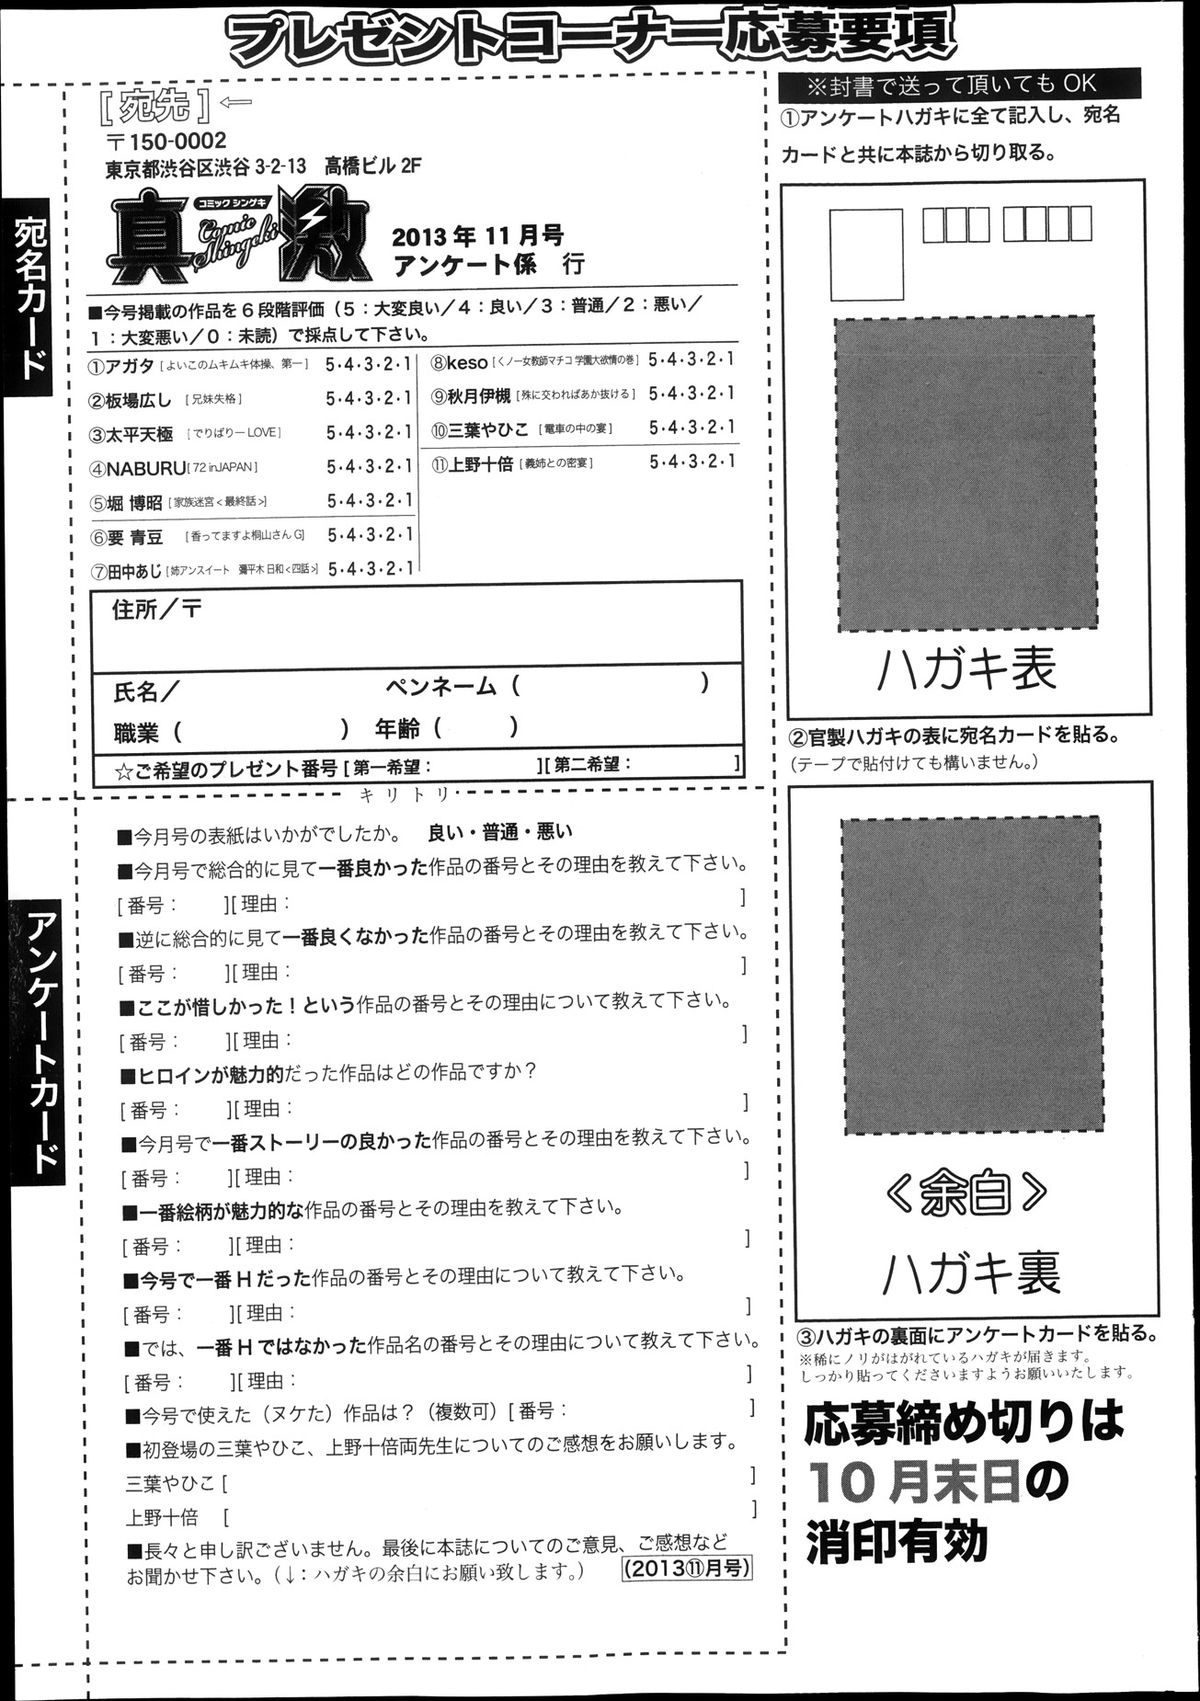 プレゼントコーナー応募要項
[宛先]←
〒150-0002
東京都渋谷区渋谷 3-2-13　高橋ビル 2F
真激
コミックシンゲキ
Comic Shingeki
2013 年 11 月号
アンケート係　行
宛名カード
■今号掲載の作品を 6 段階評価（5：大変良い／4：良い／3：普通／2：悪い／
1：大変悪い／0：未読）で採点して下さい。
①アガタ [よいこのムキムキ体操、第一]　5・4・3・2・1
②板場広し　[兄妹失格]　5・4・3・2・1
③太平天極　[でりばりー LOVE]　5・4・3・2・1
④NABURU[72 inJAPAN]　5・4・3・2・1
⑤堀 博昭 [家族迷宮<最終話>]　5・4・3・2・1
⑥要 青豆　[香ってますよ桐山さん G]　5・4・3・2・1
⑦田中あじ [姉アンスイート　彌平木 日和<四話>]　5・4・3・2・1
⑧keso [くノ一女教師マチコ 学園大欲情の巻]　5・4・3・2・1
⑨秋月伊槻 [殊に交わればあか抜ける]　5・4・3・2・1
⑩三葉やひこ [電車の中の宴]　5・4・3・2・1
⑪上野十倍 [義姉との密宴]　5・4・3・2・1
住所／〒
氏名／　ペンネーム（　）
職業（　）　年齢（　）
☆ご希望のプレゼント番号 [ 第一希望：　][ 第二希望：　]
キリトリ
アンケートカード
■今月号の表紙はいかがでしたか。　良い・普通・悪い
■今月号で総合的に見て一番良かった作品の番号とその理由を教えて下さい。
[ 番号：　][ 理由：　]
■逆に総合的に見て一番良くなかった作品の番号とその理由を教えて下さい。
[ 番号：　][ 理由：　]
■ここが惜しかった！という作品の番号とその理由について教えて下さい。
[ 番号：　][ 理由：　]
■ヒロインが魅力的だった作品はどの作品ですか？
[ 番号：　][ 理由：　]
■今月号で一番ストーリーの良かった作品の番号とその理由を教えて下さい。
[ 番号：　][ 理由：　]
■一番絵柄が魅力的な作品の番号とその理由を教えて下さい。
[ 番号：　][ 理由：　]
■今号で一番 H だった作品の番号とその理由について教えて下さい。
[ 番号：　][ 理由：　]
■では、一番 H ではなかった作品名の番号とその理由について教えて下さい。
[ 番号：　][ 理由：　]
■今号で使えた（ヌケた）作品は？（複数可）[ 番号：　]
■初登場の三葉やひこ、上野十倍両先生についてのご感想をお願いします。
三葉やひこ [　]
上野十倍　[　]
■長々と申し訳ございません。最後に本誌についてのご意見、ご感想など
お聞かせ下さい。（↓：ハガキの余白にお願い致します。）　(2013⑪月号)
※封書で送って頂いても OK
①アンケートハガキに全て記入し、宛名
カードと共に本誌から切り取る。
ハガキ表
②官製ハガキの表に宛名カードを貼る。
（テープで貼付けても構いません。）
<余白>
ハガキ裏
③ハガキの裏面にアンケートカードを貼る。
※稀にノリがはがれているハガキが届きます。
しっかり貼ってくださいますようお願いいたします。
応募締め切りは
10 月末日の
消印有効